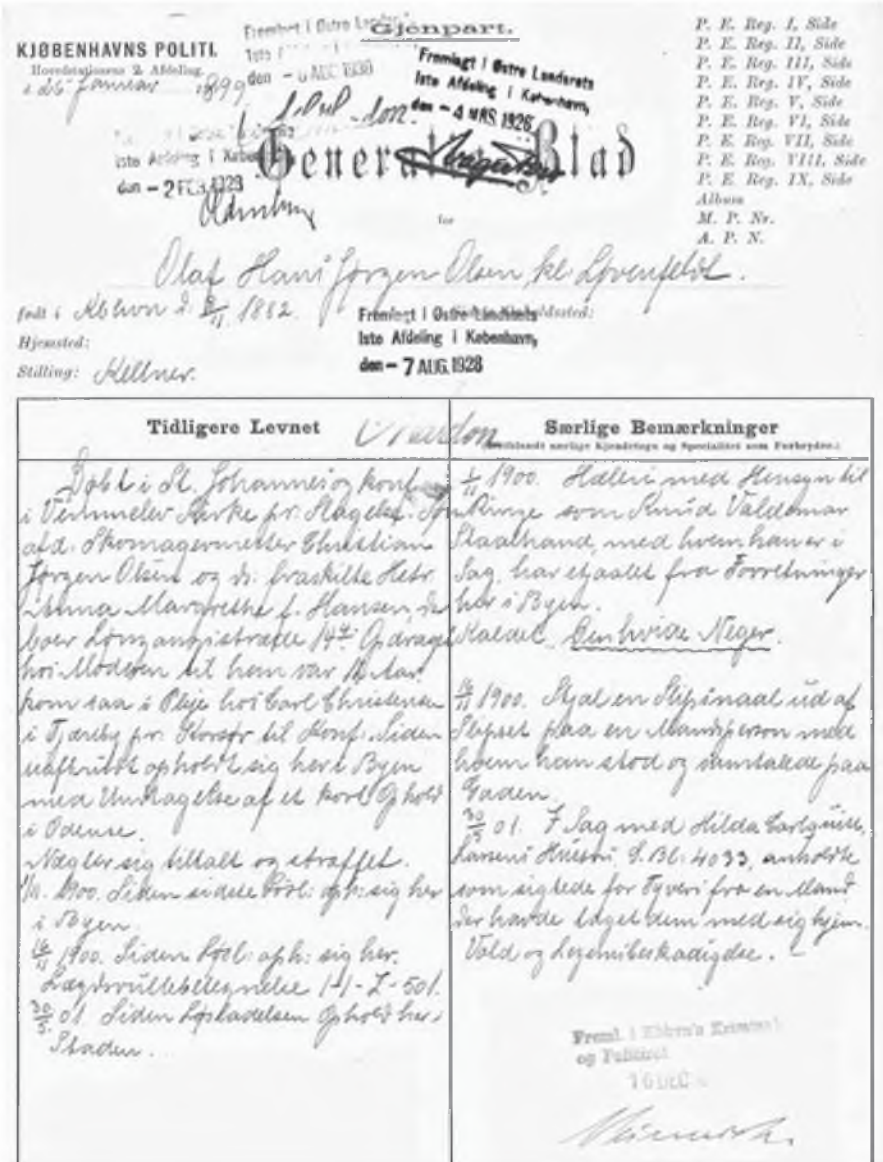 Gjenpart.
KJØBENHAVNS POLITI.
Hovedstationens 2. Afdeling.
d. 26 Januar 1899
Fremlagt i Østre Landsrets
Iste Afdeling i København,
den - 4 MRS. 1926
Iste Afdeling i
den - 2 FEB. 1923
General-Blad
for
P. E. Reg. I, Side
P. E. Reg. II, Side
P. E. Reg. III, Side
P. E. Reg. IV, Side
P. E. Reg. V, Side
P. E. Reg. VI, Side
P. E. Reg. VII, Side
P. E. Reg. VIII, Side
P. E. Reg. IX, Side
Album
M. P. Nr.
A. P. N.
Olaf Hans Jørgen Olsen, kl. Løvenfeldt.
født i Kbhvn d. 2/11 1882.
Hjemsted:
Stilling: Kellner.
Fremlagt i Østre Landsrets
Iste Afdeling i København,
den - 7 AUG. 1928
Tidligere Levnet
Døbt i St. Johannes og konf.
i Vemmelev Kirke pr. Slagelse. Søn
af d. Skomagermester Christian
Jørgen Olsen og ds. fraskilte Hstr.
Anna Margrethe f. Hansen, der
boer Longangsstræde Opdraget
hos Moderen til han var Aar,
kom saa i Pleje hos Carl Christensen
i Tjæreby pr. Korsør til Konf. Siden
uafbrudt opholdt sig her i Byen
med Undtagelse af et kort Ophold
i Odense.
Nægter sig tiltalt og straffet.
1/11. 1900. Siden sidste Løsl: oph: sig her
i Byen.
16/11 1900. Siden Løsl: oph: sig her.
Lægdsrullebetegnelse 1-1-Z-501.
30/5 01. Siden Løsladelsen Ophold her i
Staden.
Særlige Bemærkninger
(deriblandt særlige Kjendetegn og Specialitet som Forbryder.)
1/11 1900. Hæleri med Hensyn til
Ringe som Knud Valdemar
Staalhand, med hvem han er i
Sag, har stjaalet fra Forretninger
her i Byen.
Kaldet "Den hvide Neger".
16/11 1900. Stjal en Slipsnaal ud af
Slipset paa en Mandsperson med
hvem han stod og samtalede paa
Gaden.
30/5 01. I Sag med Hilda Carlquist,
Hustru, G. Bl: 4033, anholdte
som sigtede for Tyveri fra en Mand
der havde taget dem med sig hjem.
Vold og Legemsbeskadigelse.
Freml. i Kbhvn's Kriminal
og Politiret
16 DEC